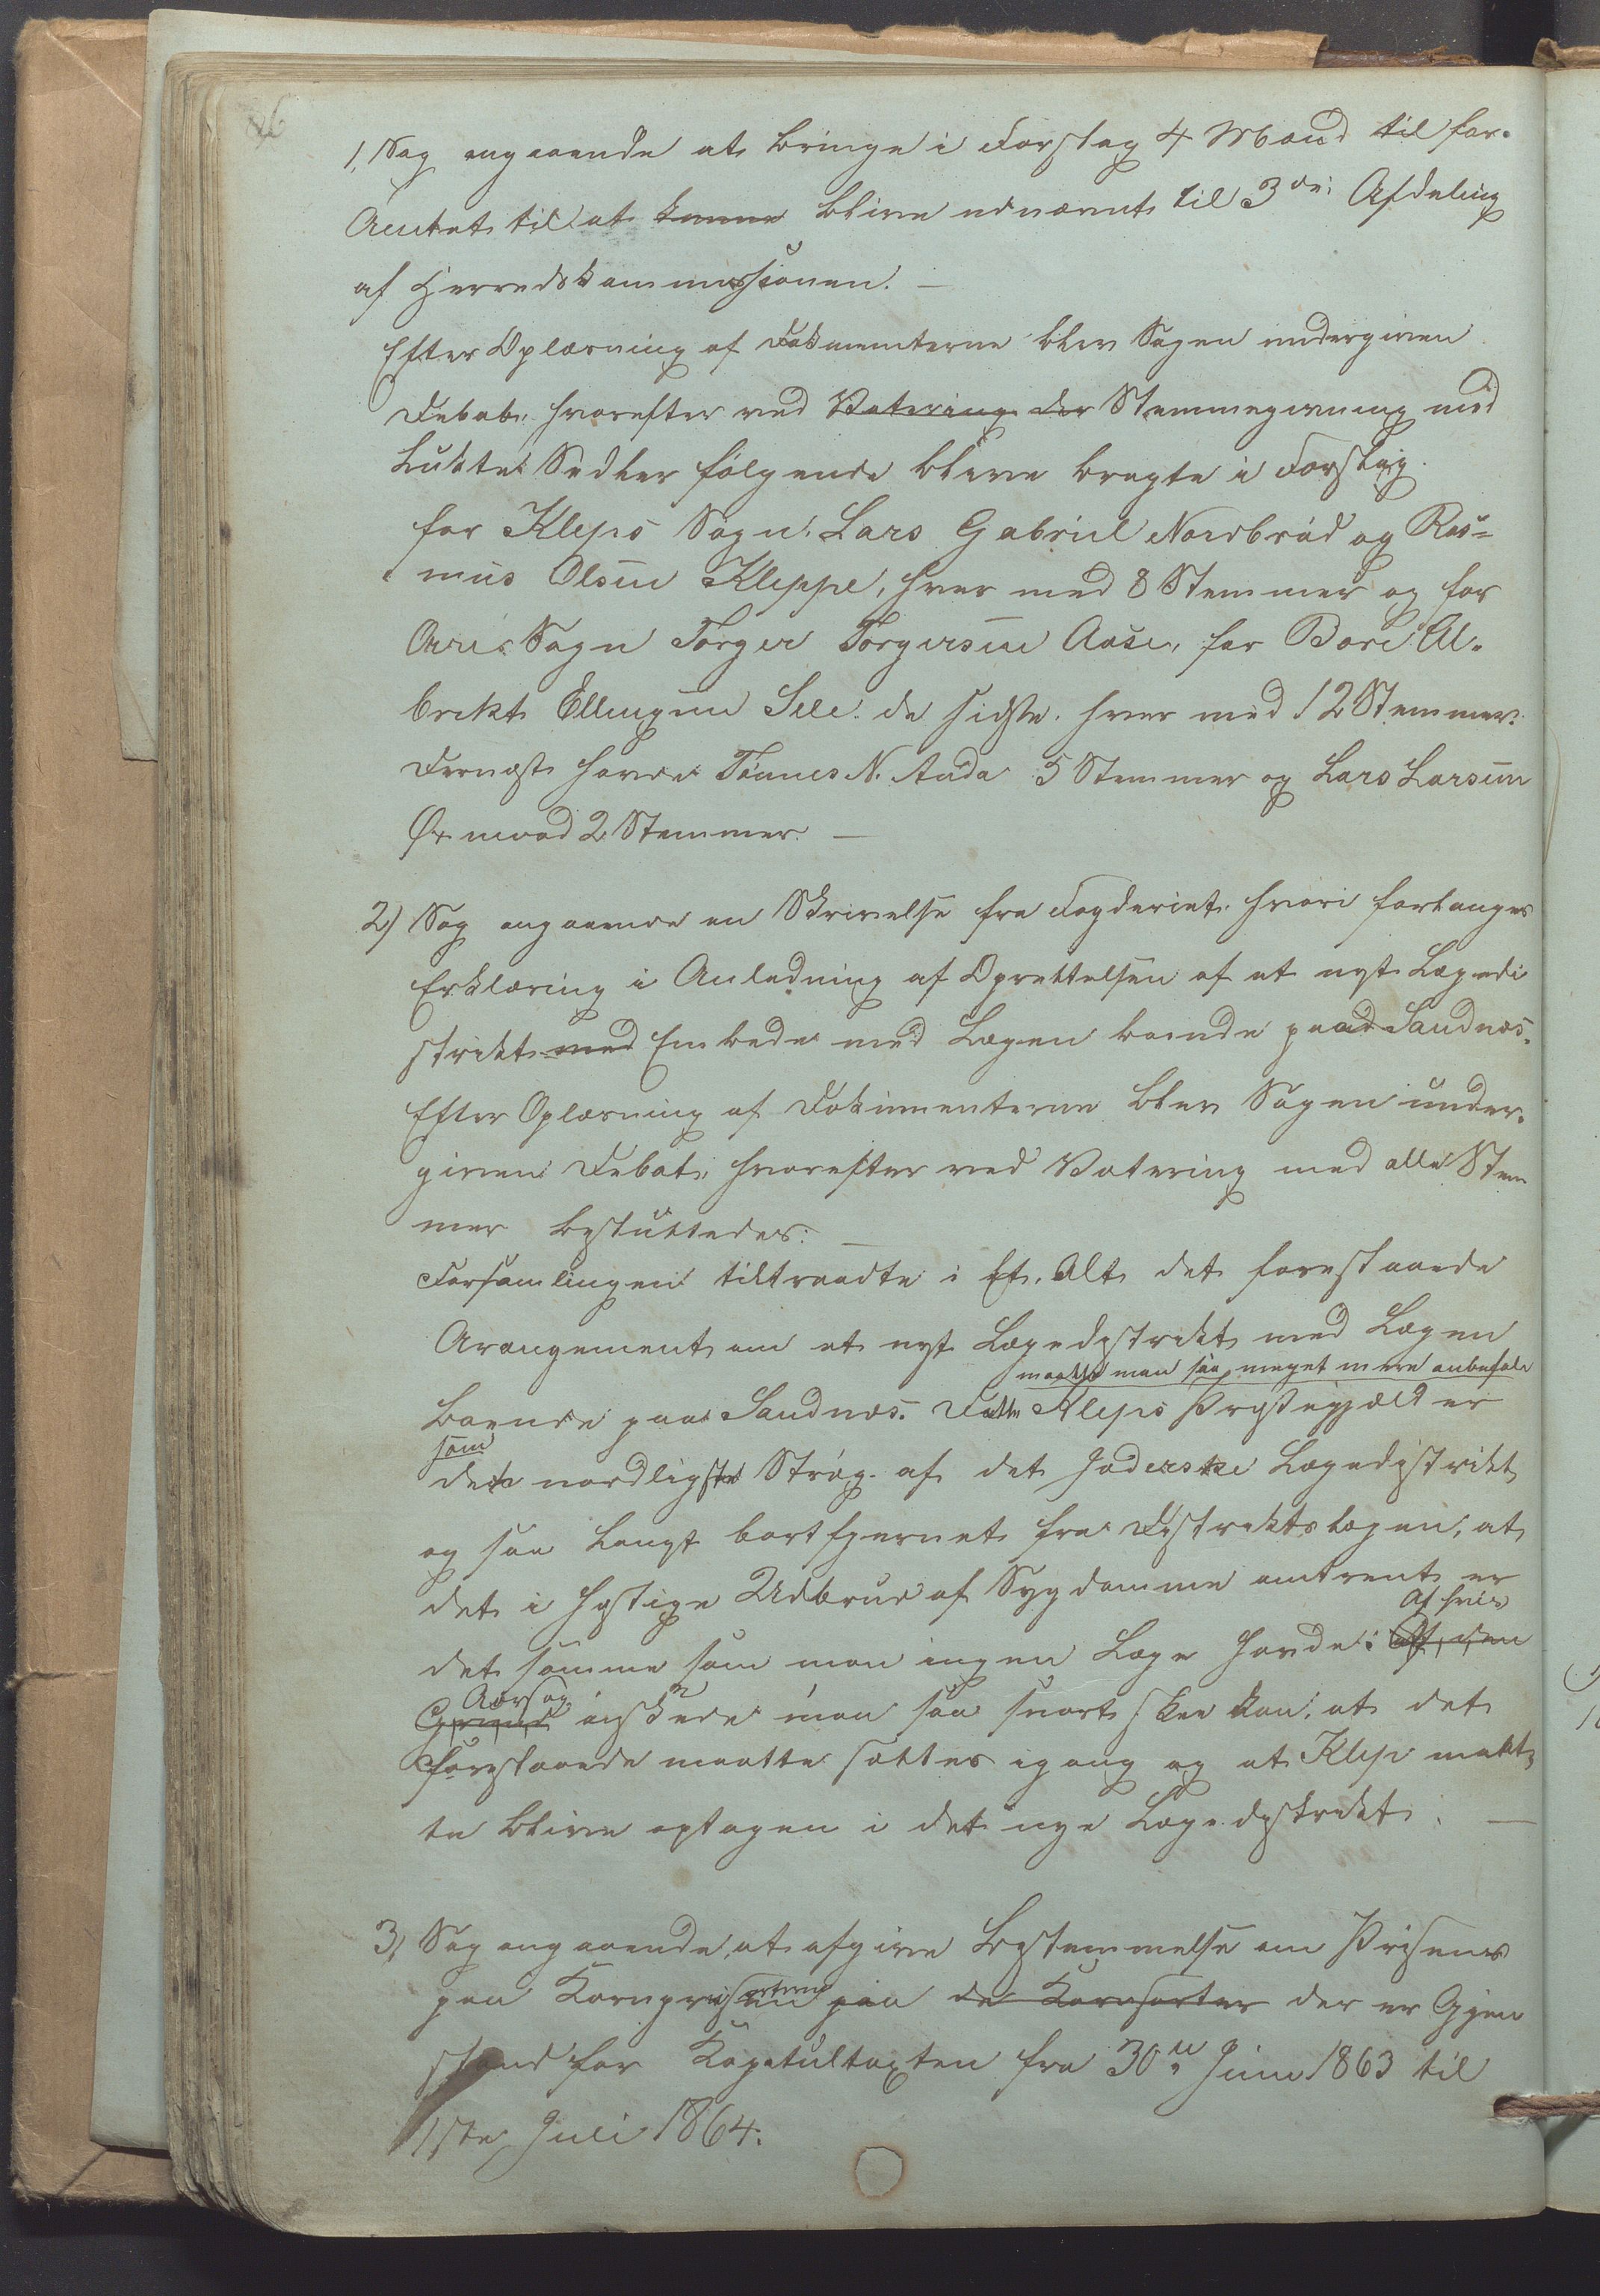 86
1, Sag angaaende at bringe i Forslag 4 Mænd til for-
Amtet til at kunne blive udnævnt til 3de Afdeling
af Herredskommissionen. —
Efter Oplæsning af Dokumenterne blev Sagen undergiven
Debat, hvorefter ved Votering der Stemmegivning med
lukte Sedler følgende bleve bragte i Forslag.
for Kleps Sogn: Lars Gabriel Nordbraad og Ras=
mus Olsen Kleppe, hver med 8 Stemmer og for
Orre Sogn Torger Torgersen Aase, for Bore Al-
brekt Ellingsen Sele. de sidste. hver med 12 Stemmer.
Dernæst havde Tønnes N. Anda 5 Stemmer og Lars Larsen
Øxnevad 2 Stemmer. —
2) Sag angaaende en Skrivelse fra Fogderiet, hvori forlanges
Erklæring i Anledning af Oprettelsen af et nyt Lægedi
strikt med Embede med Lægen boende paa Sandnæs.
Efter Oplæsning af Dokumenterne blev Sagen under-
given Debat, hvorefter ved Votering med alle Stem
mer besluttedes: —
Forsamlingen tiltraadte i Et. Alt det forestaaende
Arangement om et nyt Lægedistrikt med Lægen
maatte man saa meget mere anbefale
boende paa Sandnæs. Dette Kleps Præstegjæld er
som
det nordligste Strøg af det Jæderske Lægedistrikt
og saa langt bortfjernet fra Distriktslægen, at
det i hastige Udbrud af Sygdomme omtrent er
Af hvis
det samme som man ingen Læge havde: Af den
Aarsag
Grund ønskede man saa snart skee kan, at det
forestaaende maatte sættes igang og at Klep maat-
te blive optagen i det nye Lægedistrikt. —
3, Sag angaaende at afgive Bestemmelse om Prisen
paa Kornpriserne paa de Kornsorter der er Gjen
stand for Kapitultaxten fra 30te Juni 1863 til
1ste Juli 1864.